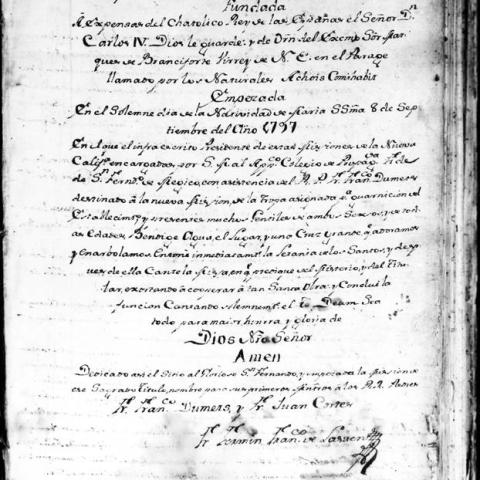 Fundada
A Expensas del Chatolico Rey de las Españas el Señor Dn
Carlos IV. Dios le guarde, y de Orn del Excmo Sor Mar
ques de Branciforte Virrey de N. E. en el Parage
llamado por los Naturales Achois Comihabit
Empezada
En el Solemne dia de la Natividad de Maria SSma 8 de Sep
tiembre del Año 1797
En el que el infraescrito Presidente de estas Misiones de la Nueva
Calif.ª encargadas por S. M. al App.co Colegio de Propag.da Fide
de Sn Fern.do de Mexico, con asistencia del R. P. Fr. Fran.co Dumetz
destinado a la nueva Mision, de la tropa asignada p.ª guarnicion del
Establecim.to y presentes muchos Gentiles de ambos Sexos, y de to-
das Edades Bendige Agua, el Lugar, y una Cruz grande q.e adoramos
y enarbolamos. Entoné inmediatam.te la Letania de los Santos, y des-
pues de ella Cante la Misa, en q.e predique
exortando a cooperar a tan Santa Obra: y Conclui la
funcion Cantando solemnem.te el te Deum. Sea
todo para maior honrra y gloria de
Dios Nro Señor
Amen
Dedicado assi el Sitio al Glorioso Sn Fernando, y empezada la Mision de
ese Sagrado Titulo, nombre para sus primeros Mntros a los RR. Padres
Fr. Fran.co Dumetz, y Fr. Juan Cortes
Fr. Fermin Fran.co de Lasuen